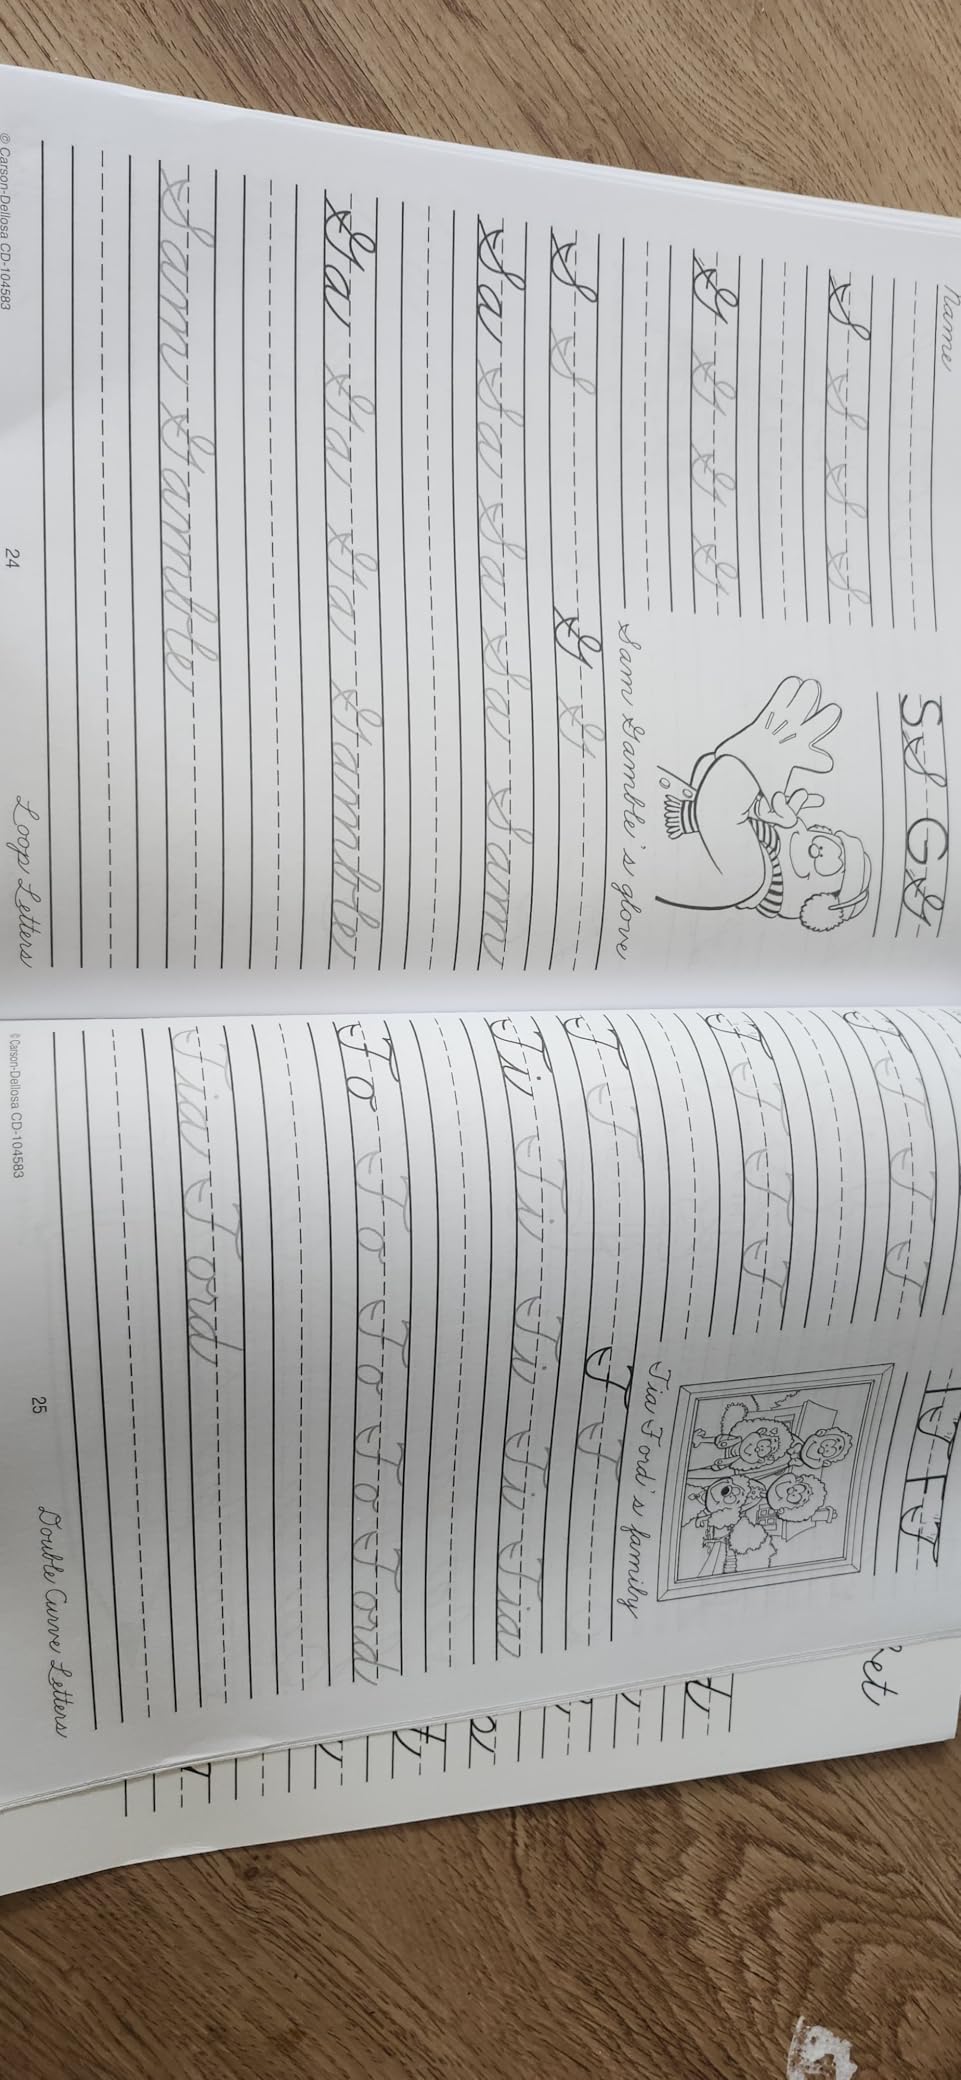 Name
S S G G
S S S S S
G G G G
Sam Gamble's glove
S S G G
Sa Sa Sa Sa Sam
Ga Ga Ga Gamble
Sam Gamble
© Carson-Dellosa CD-104583 24 Loop Letters
T T F F
T T T T
F F F F
Tia Ford's family
T T F F
Ti Ti Ti Ti Tia
Fo Fo Fo Fo Ford
Tia Ford
© Carson-Dellosa CD-104583 25 Double Curve Letters